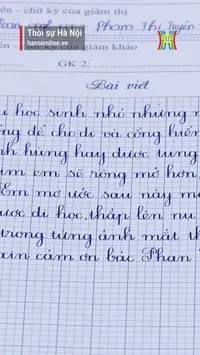 ên - chữ ký của giám thị
Phạm Thị Tuyên
Thời sự Hà Nội
hanoionline.vn
ên - chữ ký của giám khảo
GK 2:
Bài viết
u học sinh nhỏ nhưng n
ng để cho đi và cống hiến
nh hùng hay được tung
im em sẽ rộng mở hơn,
Em mơ ước sau này m
ược đi học, thắp lên nu
trong từng ánh mắt th
xin cảm ơn bác Phan